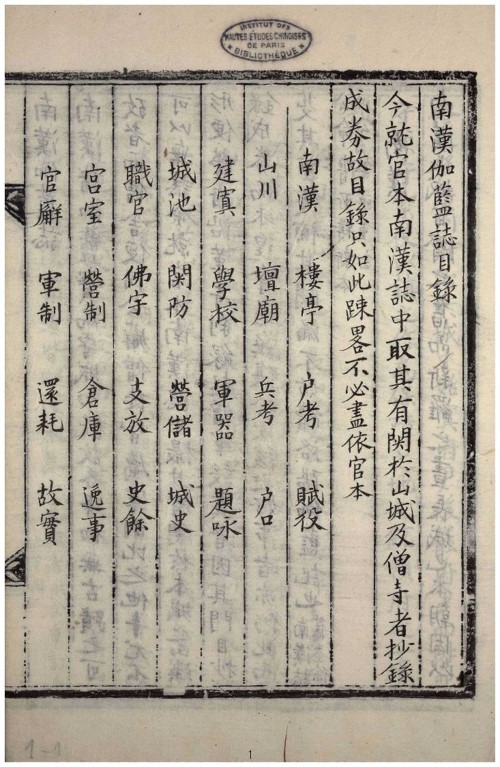 INSTITUT DES
HAUTES ÉTUDES CHINOISES
DE PARIS
* BIBLIOTHÈQUE *
南漢伽藍誌目錄
今就官本南漢誌中取其有関於山城及僧寺者抄錄
成券故目錄只如此踈畧不必盡依官本
南漢 樓亭 户考 賦役
山川 壇廟 兵考 户口
建寘 學校 軍器 題咏
城池 関防 營儲 城史
職官 佛宇 支放 史餘
宮室 營制 倉庫 逸事
官廨 軍制 還耗 故實
1-1
1